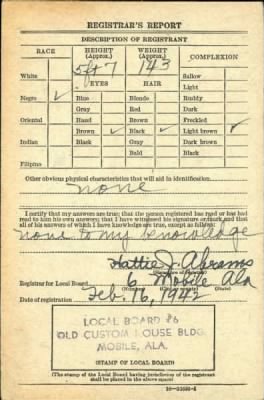 REGISTRAR'S REPORT
DESCRIPTION OF REGISTRANT
RACE HEIGHT (Approx.) WEIGHT (Approx.) COMPLEXION
White 5 ft 7 143 Sallow
EYES HAIR Light
Negro ✓ Blue Blonde Ruddy
Gray Red Dark
Oriental Hazel Brown Freckled
Brown ✓ Black ✓ Light brown ✓
Indian Black Gray Dark brown
Bald Black
Filipino
Other obvious physical characteristics that will aid in identification
none
I certify that my answers are true; that the person registered has read or has had
read to him his own answers; that I have witnessed his signature or mark and that
all of his answers of which I have knowledge are true, except as follows:
none to my knowledge
Hattie J. Abrams
Registrar for Local Board 6 Mobile Ala
(Number) (City or county) (State)
Date of registration Feb. 16, 1942
LOCAL BOARD #6
OLD CUSTOM HOUSE BLDG.
MOBILE, ALA.
(STAMP OF LOCAL BOARD)
(The stamp of the Local Board having jurisdiction of the registrant
shall be placed in the above space)